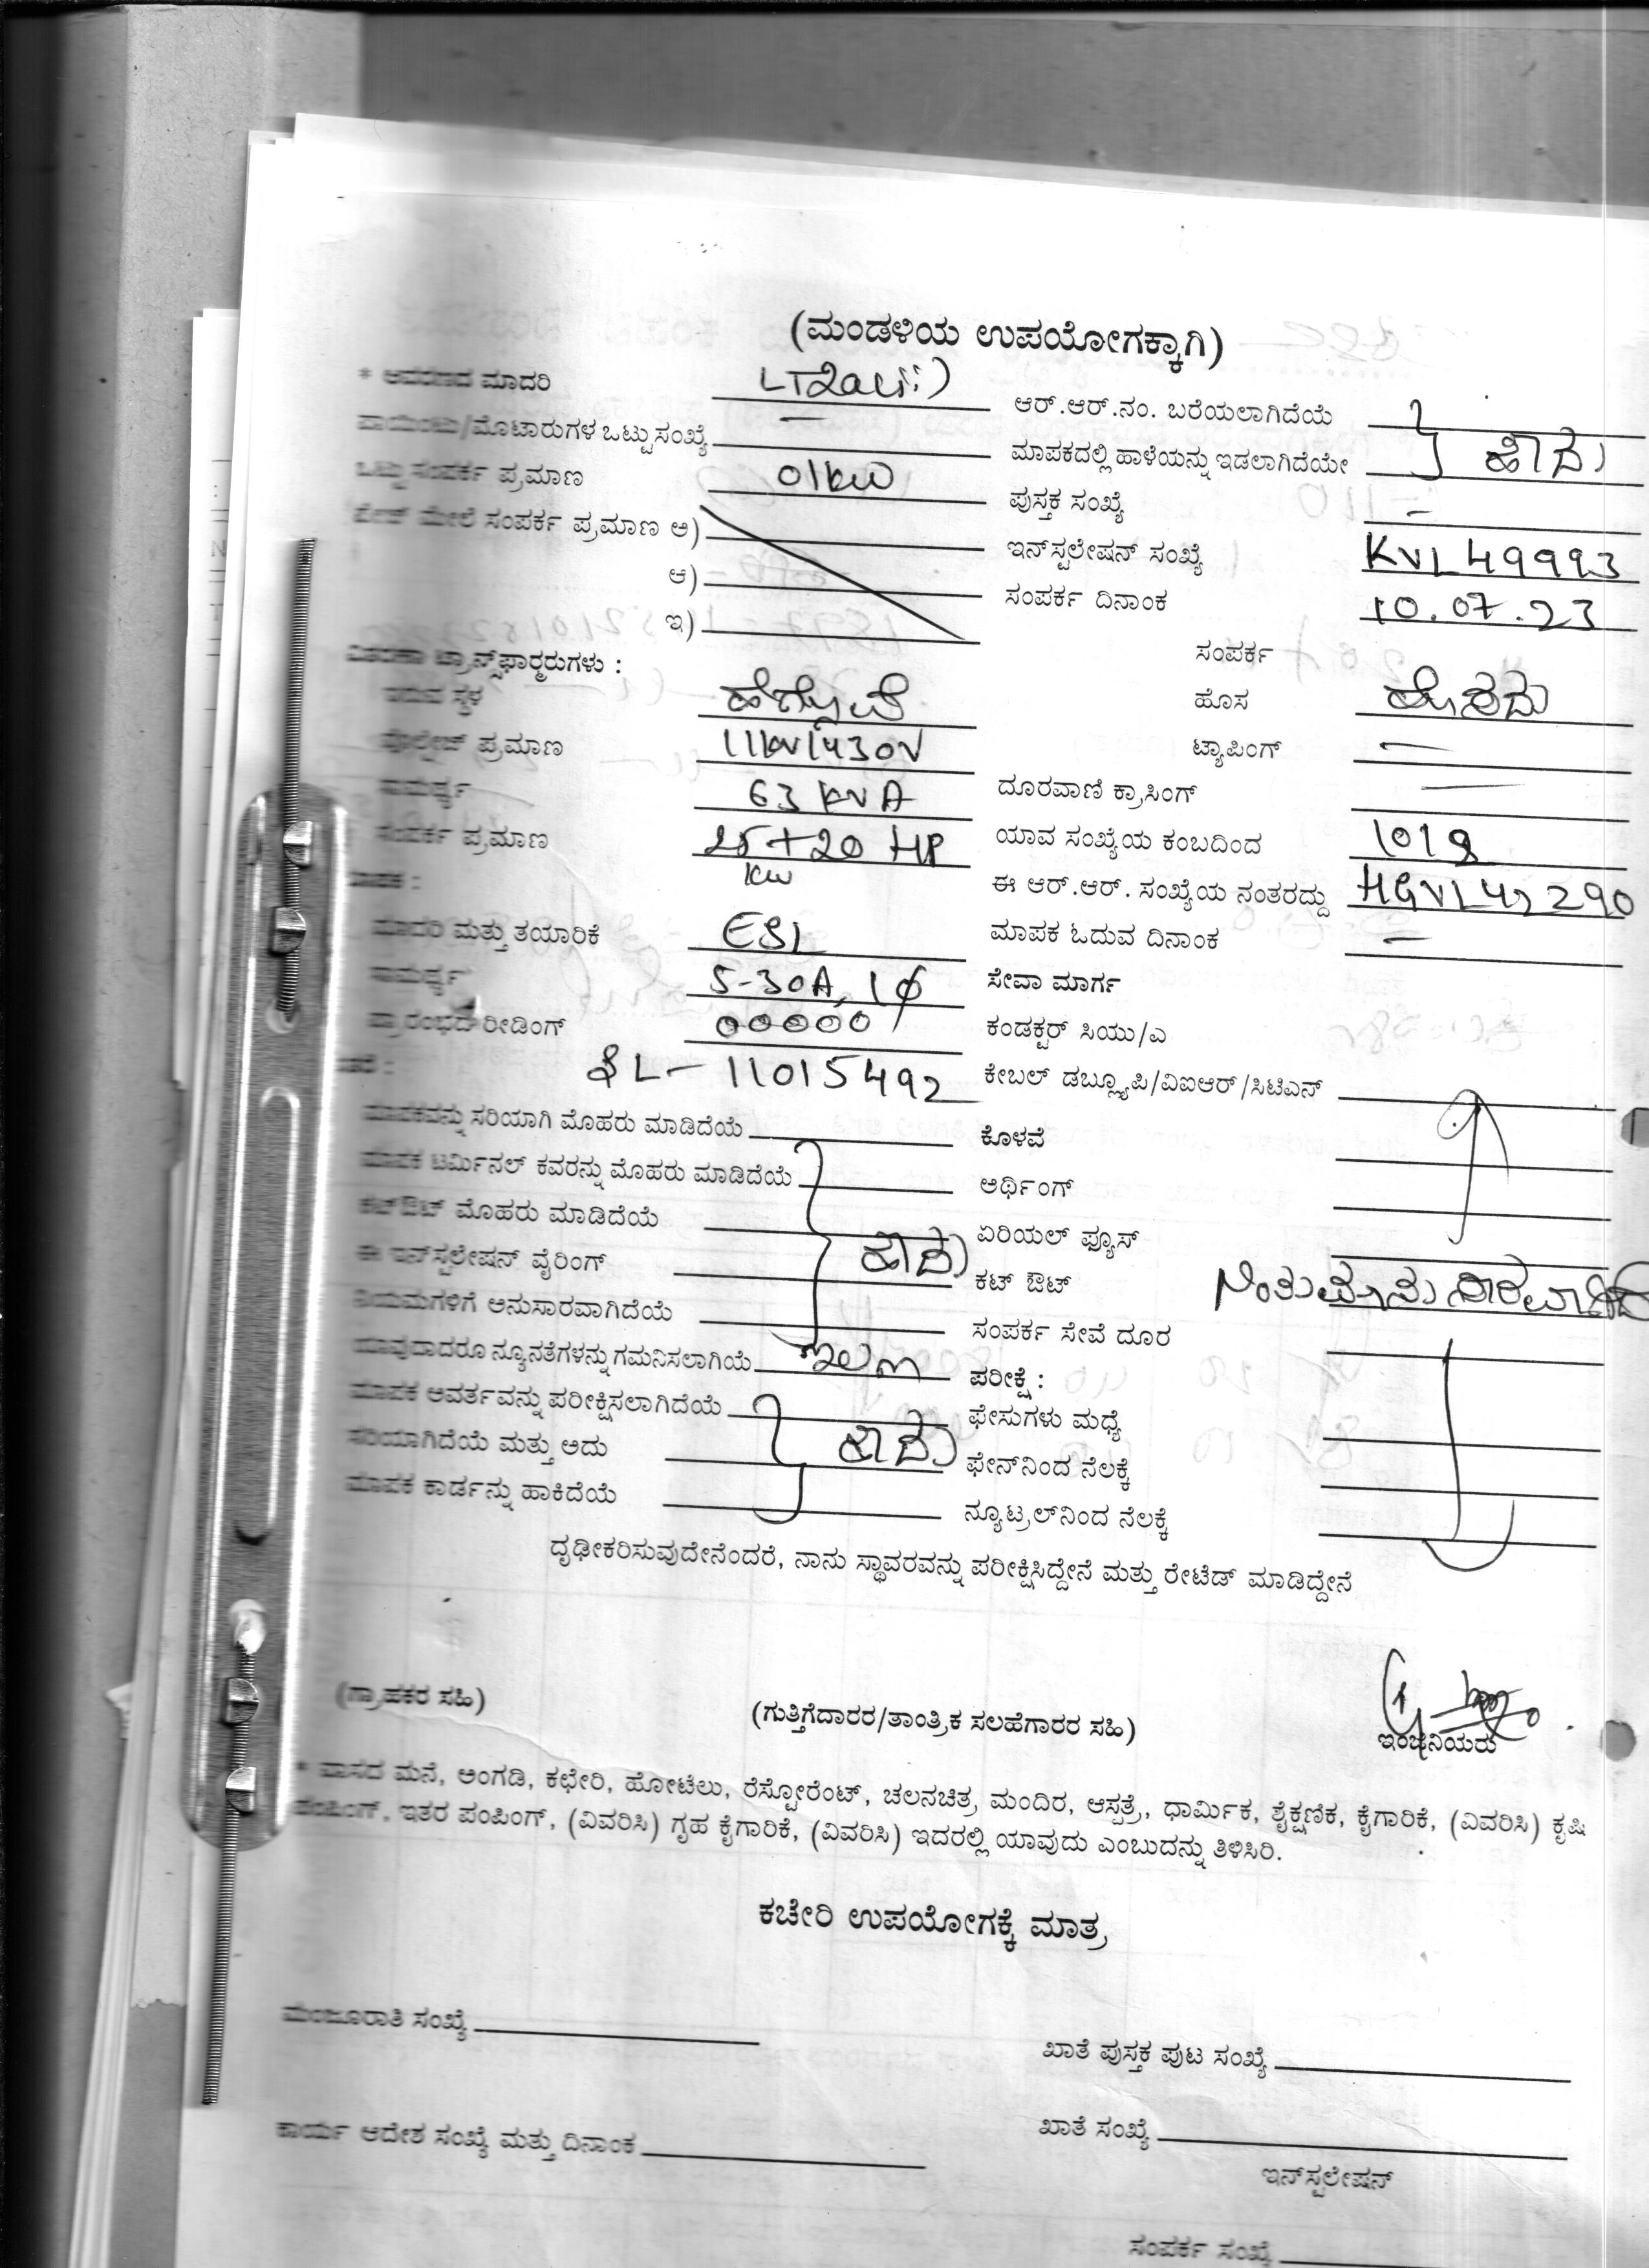 (ಮಂಡಳಿಯ ಉಪಯೋಗಕ್ಕಾಗಿ)
* ಆವರಣದ ಮಾದರಿ LT2a(ii)
ಆರ್.ಆರ್.ನಂ. ಬರೆಯಲಾಗಿದೆಯೆ
ಪಾಯಿಂಟು/ಮೊಟಾರುಗಳ ಒಟ್ಟು ಸಂಖ್ಯೆ —
ಮಾಪಕದಲ್ಲಿ ಹಾಳೆಯನ್ನು ಇಡಲಾಗಿದೆಯೇ ಹೌದು
ಒಟ್ಟು ಸಂಪರ್ಕ ಪ್ರಮಾಣ 01kw
ಪುಸ್ತಕ ಸಂಖ್ಯೆ —
ಮೇಲೆ ಸಂಪರ್ಕ ಪ್ರಮಾಣ ಅ)
ಇನ್‌ಸ್ಟಲೇಷನ್ ಸಂಖ್ಯೆ KVL49993
ಆ)
ಸಂಪರ್ಕ ದಿನಾಂಕ 10.07.23
ಇ)
ಸಂಪರ್ಕ
ವಿತರಣಾ ಟ್ರಾನ್ಸ್‌ಫಾರ್ಮರುಗಳು :
ಇರುವ ಸ್ಥಳ
ಹೊಸ ಹೊಸದು
ವೋಲ್ಟೇಜ್ ಪ್ರಮಾಣ 11kv/430V
ಟ್ಯಾಪಿಂಗ್ —
ಸಾಮರ್ಥ್ಯ 63 KVA
ದೂರವಾಣಿ ಕ್ರಾಸಿಂಗ್ —
ಸಂಪರ್ಕ ಪ್ರಮಾಣ 25+20 HP
kw
ಯಾವ ಸಂಖ್ಯೆಯ ಕಂಬದಿಂದ
ಮಾಪಕ :
ಈ ಆರ್.ಆರ್. ಸಂಖ್ಯೆಯ ನಂತರದ್ದು HGVL42290
ಮಾದರಿ ಮತ್ತು ತಯಾರಿಕೆ
ಮಾಪಕ ಓದುವ ದಿನಾಂಕ —
ಸಾಮರ್ಥ್ಯ 5-30A, 1φ
ಸೇವಾ ಮಾರ್ಗ
ಪ್ರಾರಂಭದ ರೀಡಿಂಗ್ 00000
ಕಂಡಕ್ಟರ್ ಸಿಯು/ಎ
SL-11015492
ಕೇಬಲ್ ಡಬ್ಲ್ಯೂಪಿ/ವಿಐಆರ್/ಸಿಟಿಎಸ್
ಮಾಪಕವನ್ನು ಸರಿಯಾಗಿ ಮೊಹರು ಮಾಡಿದೆಯೆ
ಕೊಳವೆ
ಮಾಪಕ ಟರ್ಮಿನಲ್ ಕವರನ್ನು ಮೊಹರು ಮಾಡಿದೆಯೆ
ಅರ್ಥಿಂಗ್
ಕಟ್‌ಔಟ್ ಮೊಹರು ಮಾಡಿದೆಯೆ ಹೌದು
ಏರಿಯಲ್ ಫ್ಯೂಸ್
ಈ ಇನ್‌ಸ್ಟಲೇಷನ್ ವೈರಿಂಗ್
ಕಟ್ ಔಟ್
ನಿಯಮಗಳಿಗೆ ಅನುಸಾರವಾಗಿದೆಯೆ
ಸಂಪರ್ಕ ಸೇವೆ ದೂರ
ಯಾವುದಾದರೂ ನ್ಯೂನತೆಗಳನ್ನು ಗಮನಿಸಲಾಗಿಯೆ ಇಲ್ಲ
ಪರೀಕ್ಷೆ :
ಮಾಪಕ ಆವರ್ತವನ್ನು ಪರೀಕ್ಷಿಸಲಾಗಿದೆಯೆ
ಫೇಸುಗಳು ಮಧ್ಯೆ
ಸರಿಯಾಗಿದೆಯೆ ಮತ್ತು ಅದು ಹೌದು
ಫೇಸ್‌ನಿಂದ ನೆಲಕ್ಕೆ
ಮಾಪಕ ಕಾರ್ಡನ್ನು ಹಾಕಿದೆಯೆ
ನ್ಯೂಟ್ರಲ್‌ನಿಂದ ನೆಲಕ್ಕೆ
ದೃಢೀಕರಿಸುವುದೇನೆಂದರೆ, ನಾನು ಸ್ಥಾವರವನ್ನು ಪರೀಕ್ಷಿಸಿದ್ದೇನೆ ಮತ್ತು ರೇಟೆಡ್ ಮಾಡಿದ್ದೇನೆ
(ಗ್ರಾಹಕರ ಸಹಿ)
(ಗುತ್ತಿಗೆದಾರರ/ತಾಂತ್ರಿಕ ಸಲಹೆಗಾರರ ಸಹಿ)
ಇಂಜಿನಿಯರು
* ವಾಸದ ಮನೆ, ಅಂಗಡಿ, ಕಛೇರಿ, ಹೋಟೆಲು, ರೆಸ್ಟೋರೆಂಟ್, ಚಲನಚಿತ್ರ ಮಂದಿರ, ಆಸ್ಪತ್ರೆ, ಧಾರ್ಮಿಕ, ಶೈಕ್ಷಣಿಕ, ಕೈಗಾರಿಕೆ, (ವಿವರಿಸಿ) ಕೃಷಿ
ಪಂಪಿಂಗ್, ಇತರ ಪಂಪಿಂಗ್, (ವಿವರಿಸಿ) ಗೃಹ ಕೈಗಾರಿಕೆ, (ವಿವರಿಸಿ) ಇದರಲ್ಲಿ ಯಾವುದು ಎಂಬುದನ್ನು ತಿಳಿಸಿರಿ.
ಕಚೇರಿ ಉಪಯೋಗಕ್ಕೆ ಮಾತ್ರ
ಮಂಜೂರಾತಿ ಸಂಖ್ಯೆ
ಖಾತೆ ಪುಸ್ತಕ ಪುಟ ಸಂಖ್ಯೆ
ಕಾರ್ಯ ಆದೇಶ ಸಂಖ್ಯೆ ಮತ್ತು ದಿನಾಂಕ
ಖಾತೆ ಸಂಖ್ಯೆ
ಇನ್‌ಸ್ಟಲೇಷನ್
ಸಂಪರ್ಕ ಸಂಖ್ಯೆ